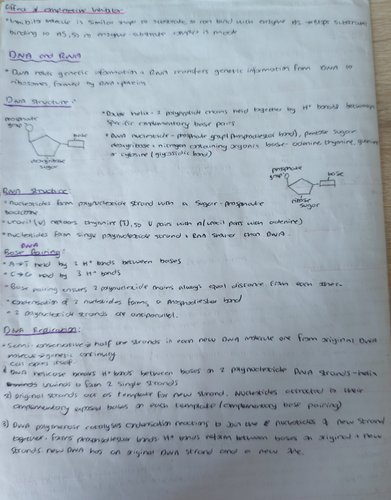 Effect of competitive inhibitor
• Inhibits molecule is similar shape to substrate so can bind with enzyme AS → stops substrate
binding to AS, so no enzyme-substrate complex is made
DNA and RNA
• DNA holds genetic information + RNA transfers genetic information from DNA to
ribosomes formed by RNA + proteins
DNA Structure:
• Double helix - 2 polynucleotide chains held together by H⁺ bonds between
specific complementary base pairs.
phosphate
group
base
deoxyribose
sugar
• DNA nucleotide - phosphate group (phosphodiester bond), pentose sugar
deoxyribose + nitrogen containing organic base - adenine, thymine, guanine
or cytosine (glycosidic bond)
phosphate
group
base
ribose
sugar
RNA Structure:
• nucleotides form polynucleotide strand with a sugar-phosphate
backbone
• uracil (U) replaces thymine (T), so U pairs with A (uracil pairs with adenine)
• nucleotides form single polynucleotide strand + RNA shorter than DNA.
DNA
Base Pairing:
• A→T held by 2 H⁺ bonds between bases
• C→G held by 3 H⁺ bonds
• Base pairing ensures 2 polynucleotide chains always equal distance from each other.
• Condensation of 2 nucleotides forms a phosphodiester bond
• 2 polynucleotide strands are antiparallel.
DNA Replication:
• Semi-conservative → half the strands in each new DNA molecule are from original DNA
molecule → genetic continuity
Cell copies itself
1) DNA helicase breaks H⁺ bonds between bases on 2 polynucleotide DNA strands - helix
unwinds to form 2 single strands
2) original strands act as template for new strand. Nucleotides attracted to their
complementary exposed bases on each template (complementary base pairing)
3) DNA polymerase catalyses condensation reactions to join the nucleotides of new strand
together - forms phosphodiester bonds. H⁺ bonds reform between bases on original + new
strands. new DNA has an original DNA strand and a new one.